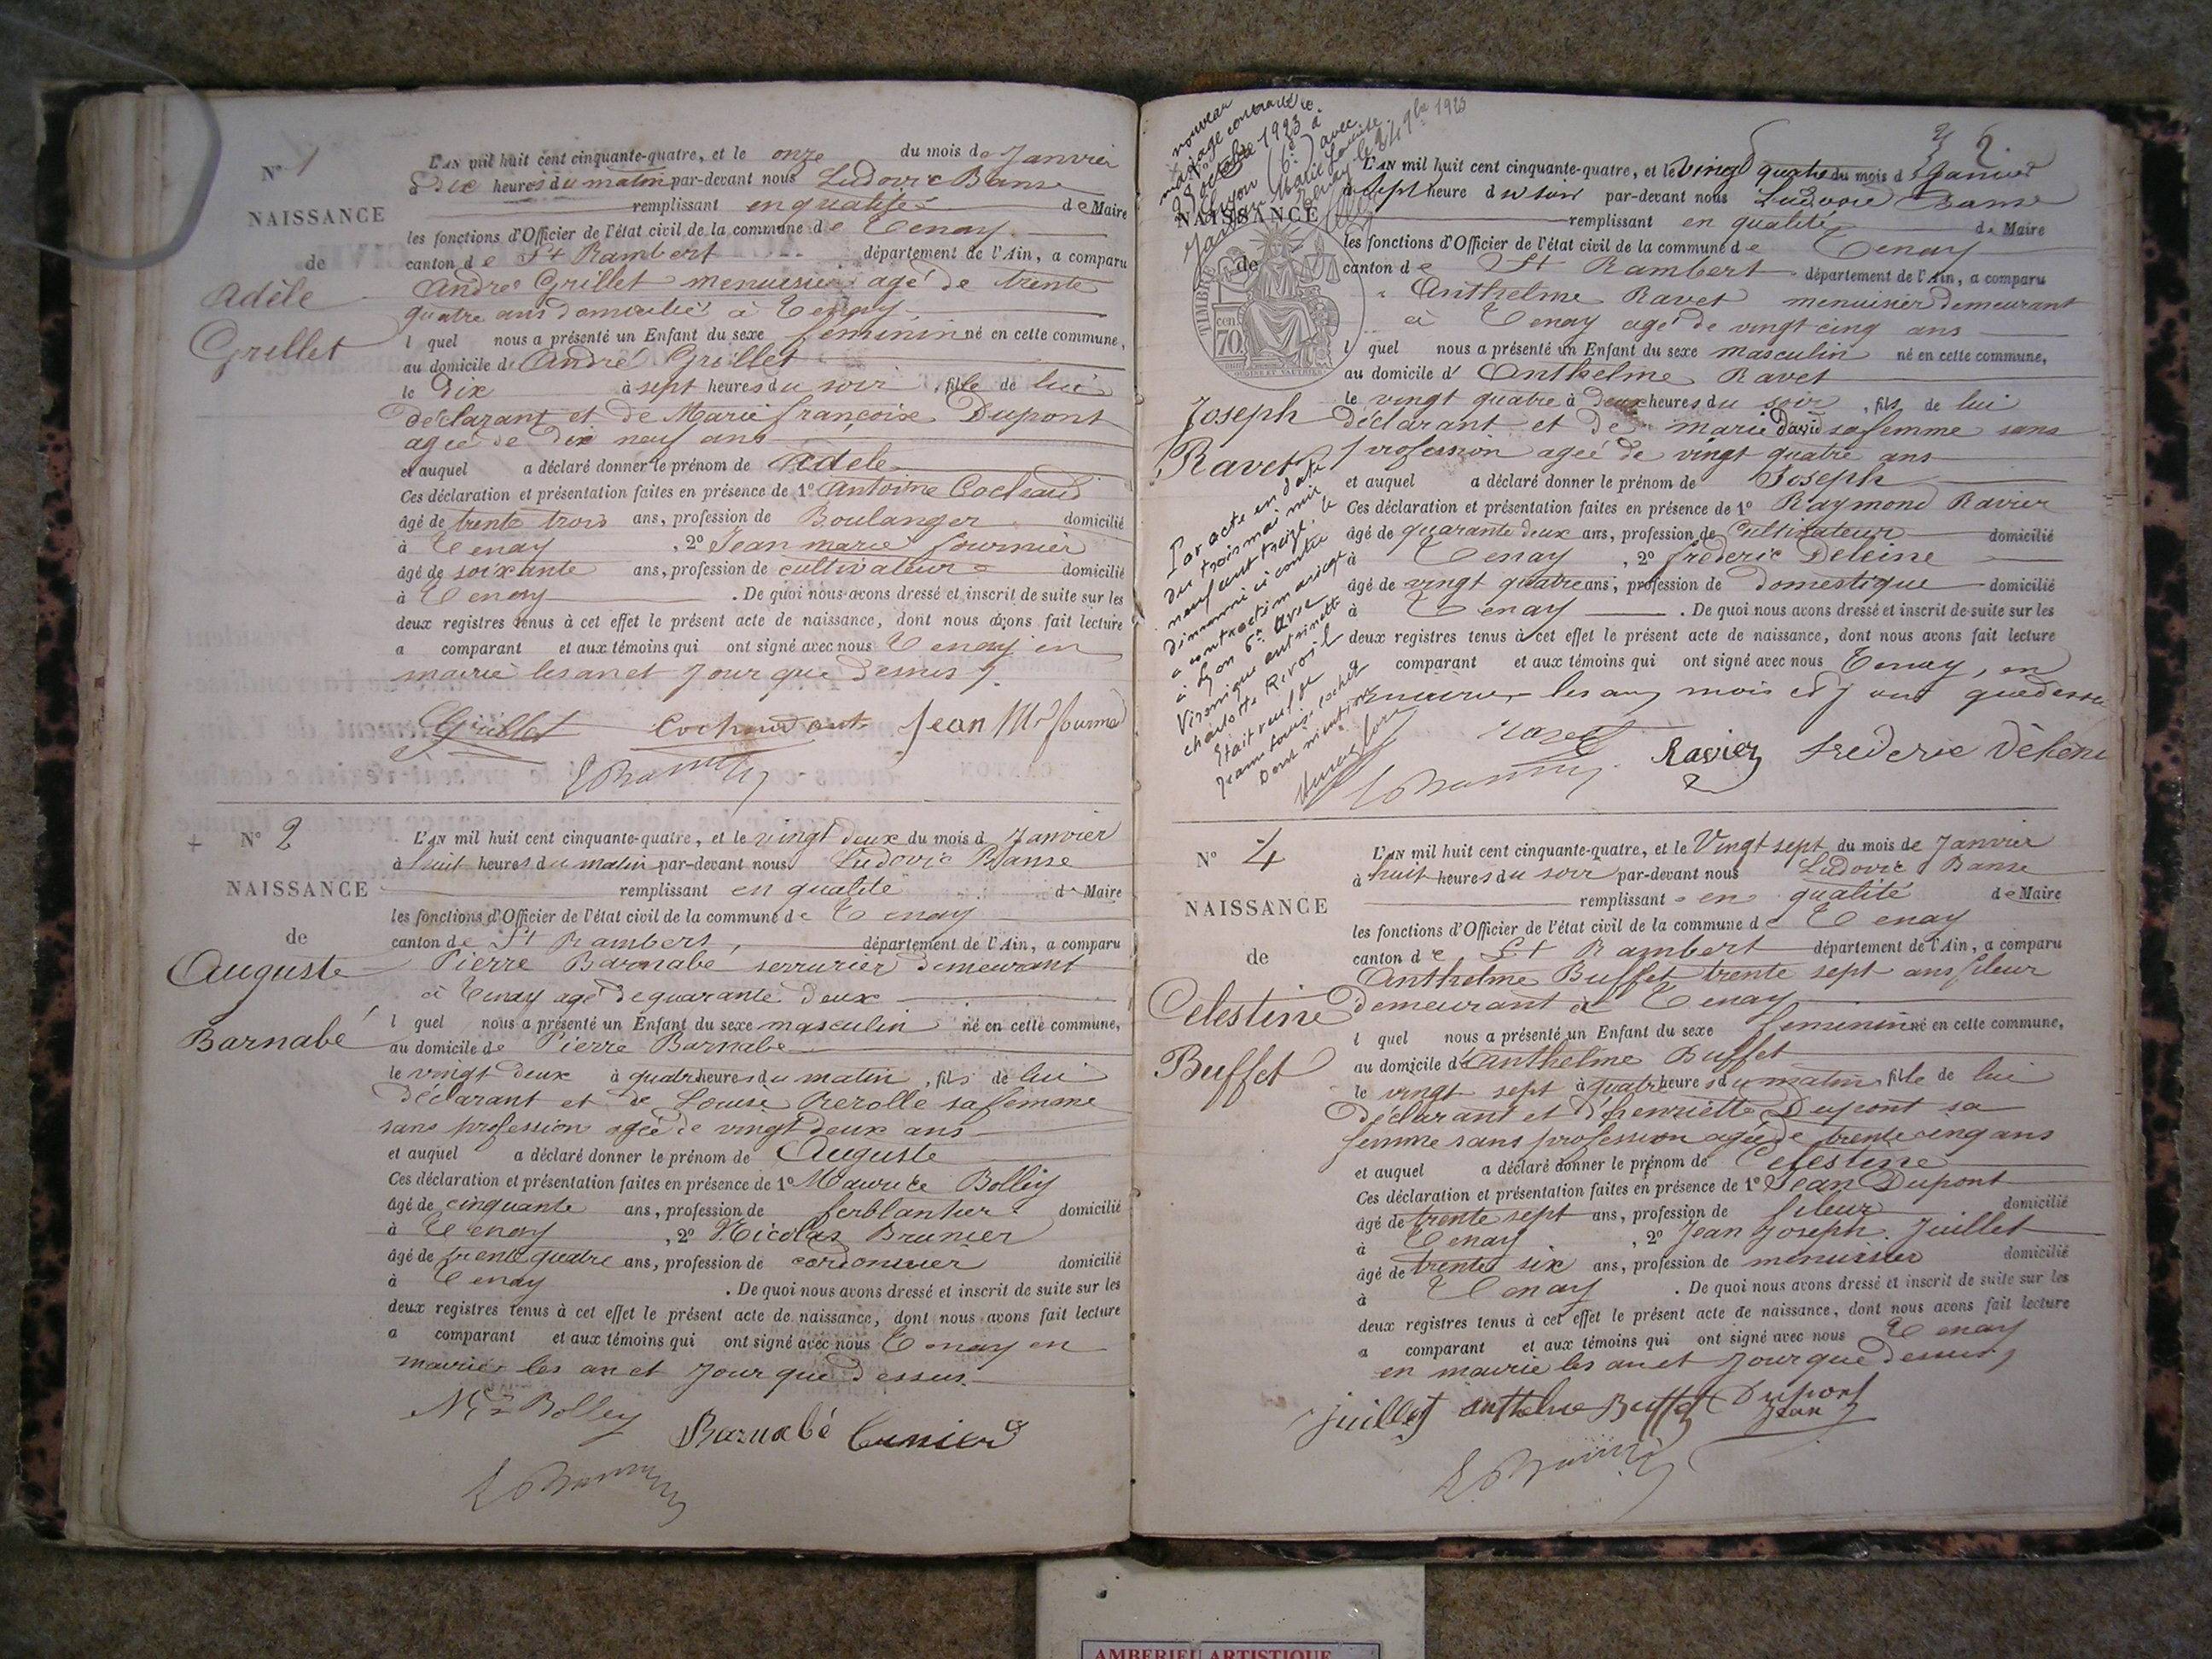 N° 1
NAISSANCE
de
Adèle
Grillet
L'AN mil huit cent cinquante-quatre, et le onze du mois de Janvier
à Dix heures du matin par-devant nous Ludovic Banse
remplissant en qualité de Maire
les fonctions d'Officier de l'état civil de la commune de Tenay
canton de St Rambert département de l'Ain, a comparu
André Grillet menuisier agé de trente
quatre ans domicilié à Tenay
l quel nous a présenté un Enfant du sexe feminin né en cette commune,
au domicile de André Grillet
le Dix à sept heures du soir, fille de lui
déclarant et de Marie françoise Dupont
agée de Dix neuf ans
et auquel a déclaré donner le prénom de Adele
Ces déclaration et présentation faites en présence de 1° Antoine
âgé de trente trois ans, profession de Boulanger domicilié
à Tenay, 2° Jean marie fournier
âgé de soixante ans, profession de cultivateur domicilié
à Tenay. De quoi nous avons dressé et inscrit de suite sur les
deux registres tenus à cet effet le présent acte de naissance, dont nous avons fait lecture
a comparant et aux témoins qui ont signé avec nous Tenay en
mairie les an et Jour que dessus
Grillet Jean
N° 2
NAISSANCE
de
Auguste
Barnabé
L'AN mil huit cent cinquante-quatre, et le vingt deux du mois d Janvier
à huit heures du matin par-devant nous Ludovic Banse
remplissant en qualité de Maire
les fonctions d'Officier de l'état civil de la commune de Tenay
canton de St Rambert, département de l'Ain, a comparu
Pierre Barnabé serrurier demeurant
à Tenay agé de quarante deux
l quel nous a présenté un Enfant du sexe masculin né en cette commune,
au domicile de Pierre Barnabé
le vingt deux à quatre heures du matin, fils de lui
Déclarant et de Louise Rerolle sa femme
sans profession agée de vingt deux ans
et auquel a déclaré donner le prénom de Auguste
Ces déclaration et présentation faites en présence de 1° Maurice Bolley
âgé de cinquante ans, profession de ferblantier domicilié
à Tenay, 2° Nicolas Brunier
âgé de trente quatre ans, profession de cordonnier domicilié
à Tenay. De quoi nous avons dressé et inscrit de suite sur les
deux registres tenus à cet effet le présent acte de naissance, dont nous avons fait lecture
a comparant et aux témoins qui ont signé avec nous Tenay en
mairie les an et Jour que dessus
Bolley Barnabé
nouveau
mariage contracté le
octobre 1923 à
Lyon (6e) avec
Marie Louise
9bre 1923
2.
NAISSANCE
de
TIMBRE
70 cen
Joseph
Ravet
L'AN mil huit cent cinquante-quatre, et le vingt quatre du mois d Janvier
à sept heure du soir par-devant nous Ludovic Banse
remplissant en qualité de Maire
les fonctions d'Officier de l'état civil de la commune de Tenay
canton de St Rambert département de l'Ain, a comparu
Anthelme Ravet menuisier demeurant
à Tenay agé de vingt cinq ans
l quel nous a présenté un Enfant du sexe masculin né en cette commune,
au domicile d' Anthelme Ravet
le vingt quatre à deux heures du soir, fils de lui
déclarant et de marie David sa femme sans
profession agée de vingt quatre ans
et auquel a déclaré donner le prénom de Joseph
Ces déclaration et présentation faites en présence de 1° Raymond Ravier
âgé de quarante deux ans, profession de Cultivateur domicilié
à Tenay, 2° frédéric Deleine
âgé de vingt quatre ans, profession de domestique domicilié
à Tenay. De quoi nous avons dressé et inscrit de suite sur les
deux registres tenus à cet effet le présent acte de naissance, dont nous avons fait lecture
a comparant et aux témoins qui ont signé avec nous Tenay, en
mairie les an, mois et jour que dessus
Par acte en date
du trois mai mil
neuf cent treize, le
dénommé ci contre
a contracté mariage
à Lyon 6e avec
Véronique antoinette
charlotte Revoil
Etait veuf de
Jeanne Louise
Dont mention
Ravet Ravier frederic
N° 4
NAISSANCE
de
Celestine
Buffet
L'AN mil huit cent cinquante-quatre, et le Vingt sept du mois de Janvier
à huit heures du soir par-devant nous Ludovic Banse
remplissant en qualité de Maire
les fonctions d'Officier de l'état civil de la commune de Tenay
canton de St Rambert département de l'Ain, a comparu
Anthelme Buffet trente sept ans fileur
demeurant à Tenay
l quel nous a présenté un Enfant du sexe feminin né en cette commune,
au domicile d'anthelme Buffet
le vingt sept à quatre heures du matin, fille de lui
Déclarant et d'henriette Dupont sa
femme sans profession agée de trente cinq ans
et auquel a déclaré donner le prénom de Celestine
Ces déclaration et présentation faites en présence de 1° Jean Dupont
âgé de trente sept ans, profession de fileur domicilié
à Tenay, 2° Jean Joseph Juillet
âgé de trente six ans, profession de menuisier domicilié
à Tenay. De quoi nous avons dressé et inscrit de suite sur les
deux registres tenus à cet effet le présent acte de naissance, dont nous avons fait lecture
a comparant et aux témoins qui ont signé avec nous Tenay
en mairie les an et Jour que dessus
juillet anthelme Buffet Dupont
Jean
AMBERIEU ARTISTIQUE